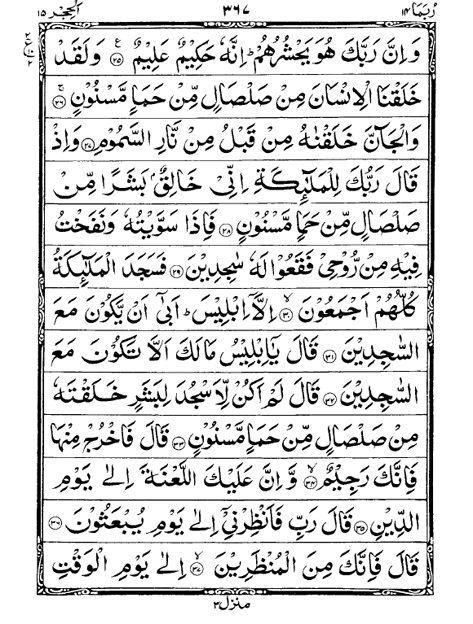 رُبَمَا ١٤ ٣٦٧ اَلْحِجْر ١٥
وَاِنَّ رَبَّكَ هُوَ يَحْشُرُهُمْ ؕ اِنَّهٗ حَكِيْمٌ عَلِيْمٌ ﴿۲۵﴾ وَلَقَدْ
خَلَقْنَا الْاِنْسَانَ مِنْ صَلْصَالٍ مِّنْ حَمَاٍ مَّسْنُوْنٍ ﴿۲۶﴾
وَالْجَآنَّ خَلَقْنٰهُ مِنْ قَبْلُ مِنْ نَّارِ السَّمُوْمِ ﴿۲۷﴾ وَاِذْ
قَالَ رَبُّكَ لِلْمَلٰٓئِكَةِ اِنِّىْ خَالِقٌۢ بَشَرًا مِّنْ
صَلْصَالٍ مِّنْ حَمَاٍ مَّسْنُوْنٍ ﴿۲۸﴾ فَاِذَا سَوَّيْتُهٗ وَنَفَخْتُ
فِيْهِ مِنْ رُّوْحِىْ فَقَعُوْا لَهٗ سٰجِدِيْنَ ﴿۲۹﴾ فَسَجَدَ الْمَلٰٓئِكَةُ
كُلُّهُمْ اَجْمَعُوْنَ ۙ﴿۳۰﴾ اِلَّاۤ اِبْلِيْسَ ؕ اَبٰٓى اَنْ يَّكُوْنَ مَعَ
السّٰجِدِيْنَ ﴿۳۱﴾ قَالَ يٰۤاِبْلِيْسُ مَا لَكَ اَلَّا تَكُوْنَ مَعَ
السّٰجِدِيْنَ ﴿۳۲﴾ قَالَ لَمْ اَكُنْ لِّاَسْجُدَ لِبَشَرٍ خَلَقْتَهٗ
مِنْ صَلْصَالٍ مِّنْ حَمَاٍ مَّسْنُوْنٍ ﴿۳۳﴾ قَالَ فَاخْرُجْ مِنْهَا
فَاِنَّكَ رَجِيْمٌ ۙ﴿۳۴﴾ وَّاِنَّ عَلَيْكَ اللَّعْنَةَ اِلٰى يَوْمِ
الدِّيْنِ ﴿۳۵﴾ قَالَ رَبِّ فَاَنْظِرْنِىْۤ اِلٰى يَوْمِ يُبْعَثُوْنَ ﴿۳۶﴾
قَالَ فَاِنَّكَ مِنَ الْمُنْظَرِيْنَ ۙ﴿۳۷﴾ اِلٰى يَوْمِ الْوَقْتِ
منزل ٣